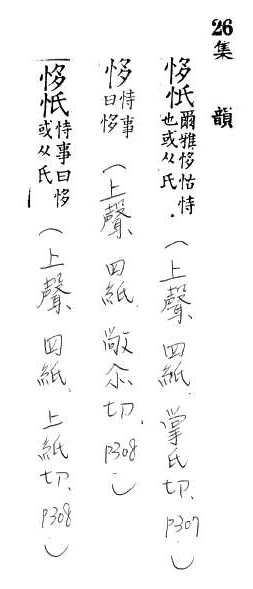 26集韻
恀忯爾雅恀怙恃也或从氏.(上聲、四紙、掌氏切、p307)
恀恃事曰恀(上聲、四紙、敞尒切、p308)
恀忯恃事曰恀或从氏(上聲、四紙、上紙切、p308)